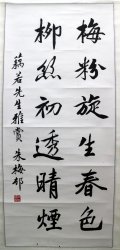 梅粉旋生春色
柳絲初透晴煙
藕若先生雅賞 朱梅邨